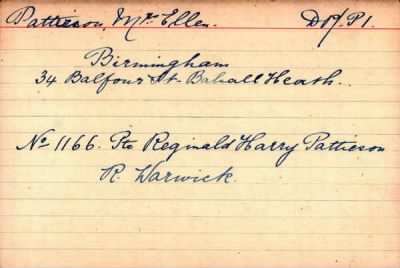 Pattieson, Mrs Ellen. D17/P1
Birmingham
34 Balfour St. Balsall Heath.
No 1166. Pte Reginald Harry Pattieson
R. Warwick.